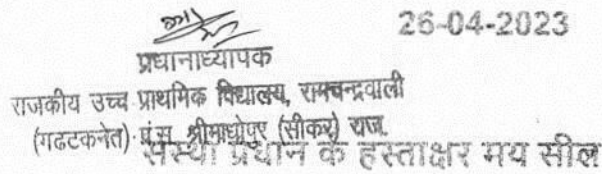 26-04-2023
प्रधानाध्यापक
राजकीय उच्च प्राथमिक विद्यालय, रामचन्द्रवाली
(गढटकनेत) पं.स. श्रीमाधोपुर (सीकर) राज.
संस्था प्रधान के हस्ताक्षर मय सील